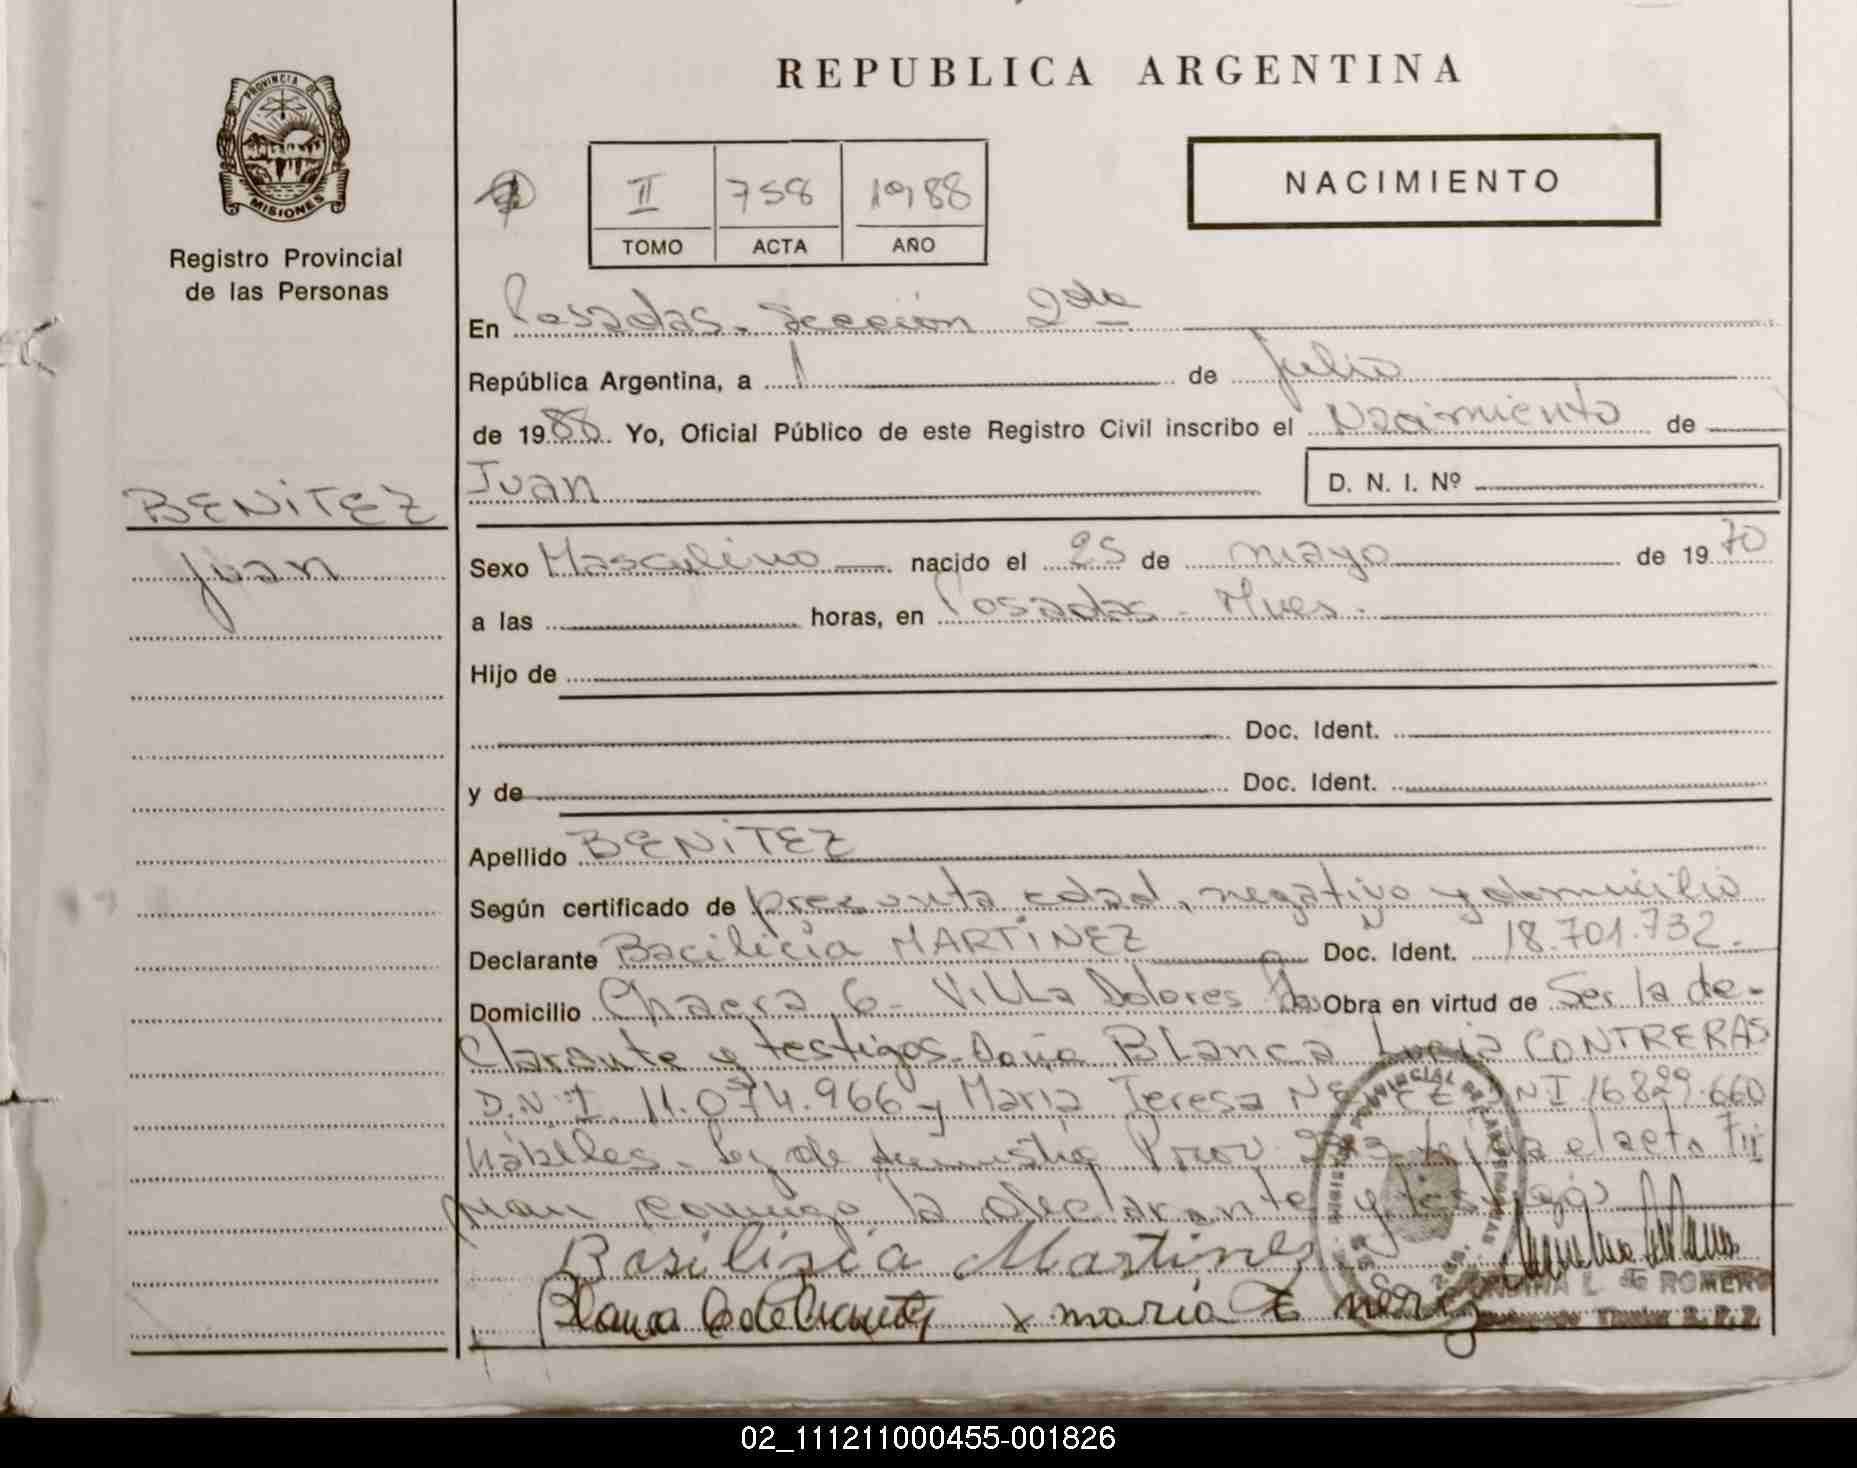 REPUBLICA ARGENTINA
PROVINCIA DE
MISIONES
Registro Provincial
de las Personas
II 758 1988
TOMO ACTA AÑO
NACIMIENTO
En Posadas. Sección 2da
República Argentina, a 1 de Julio
de 1988 Yo, Oficial Público de este Registro Civil inscribo el Nacimiento de
Juan D. N. I. Nº
BENITEZ
Juan
Sexo Masculino nacido el 25 de mayo de 1970
a las horas, en Posadas - Mnes.
Hijo de
Doc. Ident.
y de Doc. Ident.
Apellido BENITEZ
Según certificado de presunta edad, negativo y domicilio
Declarante Bacilicia MARTINEZ Doc. Ident. 18.701.732.
Domicilio Chacra 6 - Villa Dolores Obra en virtud de Ser la de-
clarante y testigos. Doña Blanca Lucia CONTRERAS
D.N.I. 11.074.966 y Maria Teresa DNI 16829.660
hábiles. Ley de Prov. el acto Fir
man conmigo la declarante y testigos
Basilisia Martinez
Blanca maria E neriz
L. de ROMERO
02_111211000455-001826